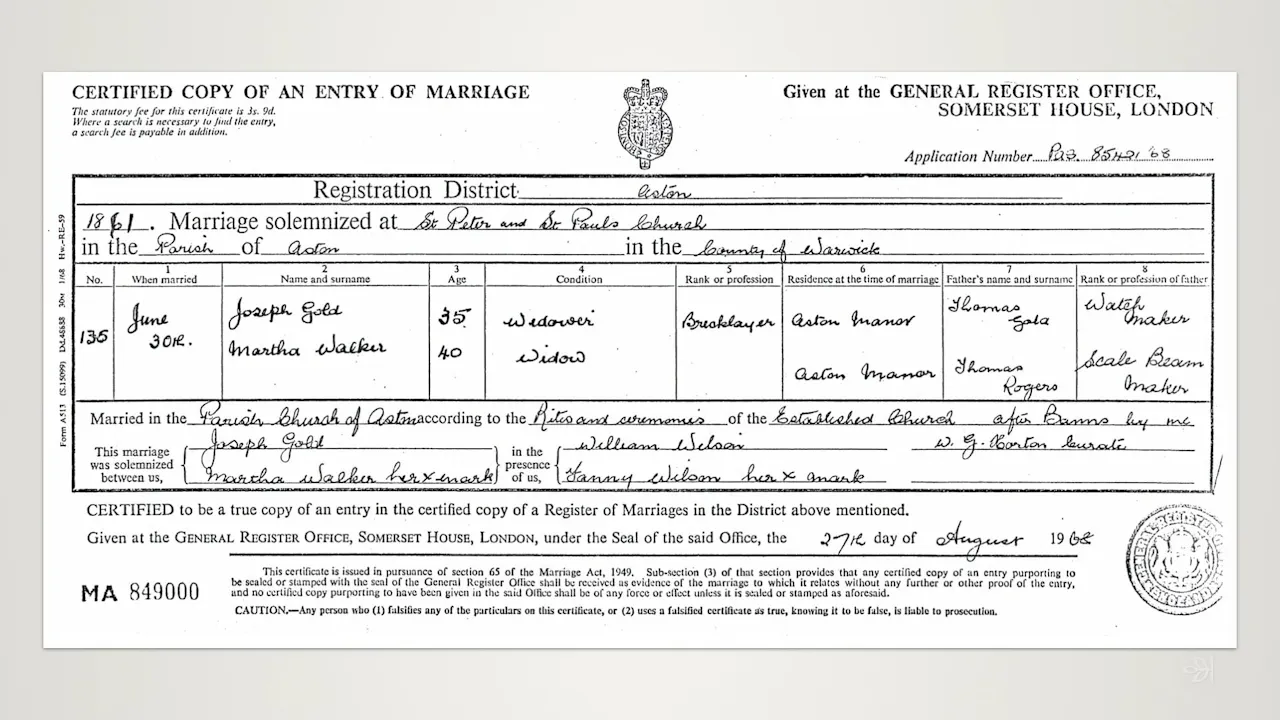 CERTIFIED COPY OF AN ENTRY OF MARRIAGE
The statutory fee for this certificate is 3s. 9d.
Where a search is necessary to find the entry,
a search fee is payable in addition.
Given at the GENERAL REGISTER OFFICE,
SOMERSET HOUSE, LONDON
Application Number PAS. 85421/68
Registration District Aston
1861. Marriage solemnized at St Peter and St Pauls Church
in the Parish of Aston in the County of Warwick
No. 1 When married 2 Name and surname 3 Age 4 Condition 5 Rank or profession 6 Residence at the time of marriage 7 Father's name and surname 8 Rank or profession of father
135 June 30th. Joseph Gold 35 Widower Bricklayer Aston Manor Thomas Gold Watch Maker
Martha Walker 40 Widow Aston Manor Thomas Rogers Scale Beam Maker
Married in the Parish Church of Aston according to the Rites and ceremonies of the Established Church after Banns by me
This marriage was solemnized between us, Joseph Gold in the presence of us, William Wilson W. G. Horton Curate
Martha Walker her x mark Fanny Wilson her x mark
CERTIFIED to be a true copy of an entry in the certified copy of a Register of Marriages in the District above mentioned.
Given at the GENERAL REGISTER OFFICE, SOMERSET HOUSE, LONDON, under the Seal of the said Office, the 27th day of August 1968
MA 849000
This certificate is issued in pursuance of section 65 of the Marriage Act, 1949. Sub-section (3) of that section provides that any certified copy of an entry purporting to
be sealed or stamped with the seal of the General Register Office shall be received as evidence of the marriage to which it relates without any further or other proof of the entry,
and no certified copy purporting to have been given in the said Office shall be of any force or effect unless it is sealed or stamped as aforesaid.
CAUTION.—Any person who (1) falsifies any of the particulars on this certificate, or (2) uses a falsified certificate as true, knowing it to be false, is liable to prosecution.